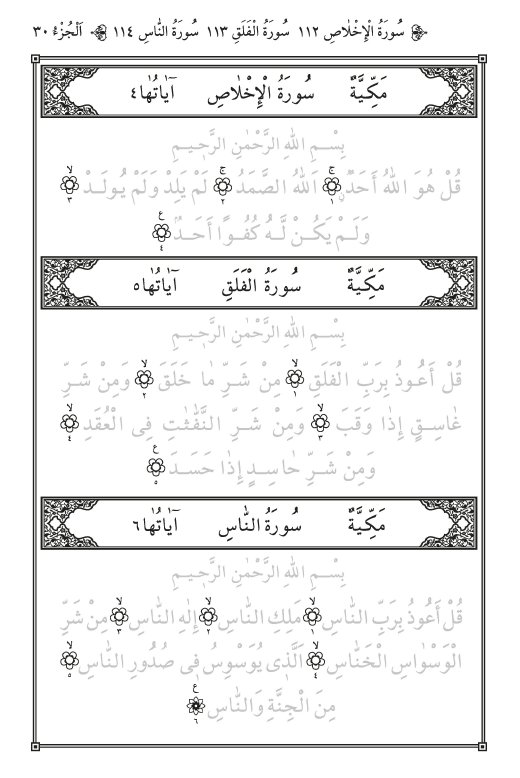 سُورَةُ الْإِخْلَاصِ ١١٢ سُورَةُ الْفَلَقِ ١١٣ سُورَةُ النَّاسِ ١١٤ اَلْجُزْءُ ٣٠
مَكِّيَّةٌ سُورَةُ الْإِخْلَاصِ آيَاتُهَا ٤
بِسْمِ اللهِ الرَّحْمٰنِ الرَّحِيمِ
قُلْ هُوَ اللهُ أَحَدٌ ج ١ اَللهُ الصَّمَدُ ج ٢ لَمْ يَلِدْ وَلَمْ يُولَدْ لا ٣
وَلَمْ يَكُنْ لَّهُ كُفُوًا أَحَدٌ ع ٤
مَكِّيَّةٌ سُورَةُ الْفَلَقِ آيَاتُهَا ٥
بِسْمِ اللهِ الرَّحْمٰنِ الرَّحِيمِ
قُلْ أَعُوذُ بِرَبِّ الْفَلَقِ لا ١ مِنْ شَرِّ مَا خَلَقَ لا ٢ وَمِنْ شَرِّ
غَاسِقٍ إِذَا وَقَبَ لا ٣ وَمِنْ شَرِّ النَّفّٰثٰتِ فِى الْعُقَدِ لا ٤
وَمِنْ شَرِّ حَاسِدٍ إِذَا حَسَدَ ع ٥
مَكِّيَّةٌ سُورَةُ النَّاسِ آيَاتُهَا ٦
بِسْمِ اللهِ الرَّحْمٰنِ الرَّحِيمِ
قُلْ أَعُوذُ بِرَبِّ النَّاسِ لا ١ مَلِكِ النَّاسِ لا ٢ إِلٰهِ النَّاسِ لا ٣ مِنْ شَرِّ
الْوَسْوَاسِ الْخَنَّاسِ لا ٤ اَلَّذِى يُوَسْوِسُ فِى صُدُورِ النَّاسِ لا ٥
مِنَ الْجِنَّةِ وَالنَّاسِ ع ٦